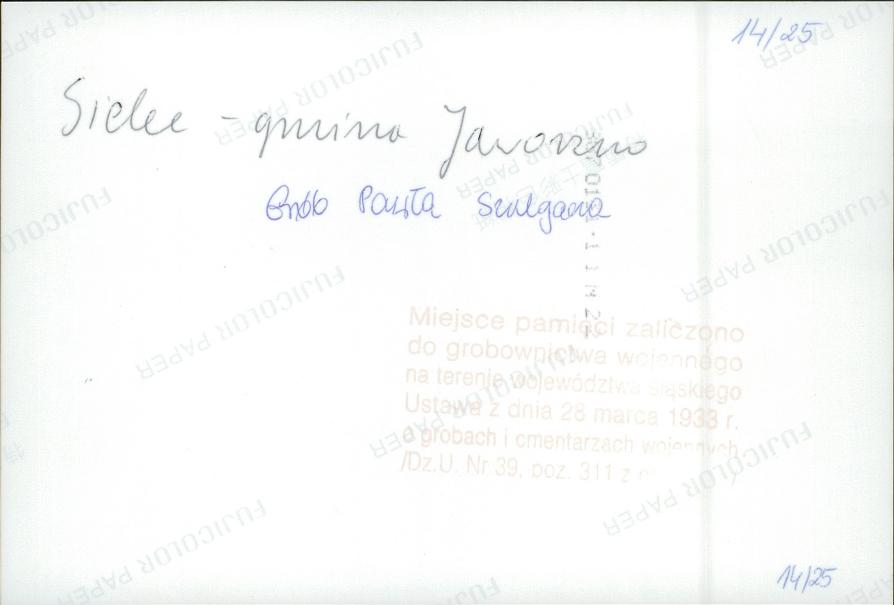 14/25
Sielec - gmina Jaworzno
Grób Pawła Szulgacza
Miejsce pamięci zaliczono
do grobownictwa wojennego
na terenie województwa śląskiego
Ustawa z dnia 28 marca 1933 r.
o grobach i cmentarzach wojennych
/Dz.U. Nr 39, poz. 311 z
14/25
FUJICOLOR PAPER